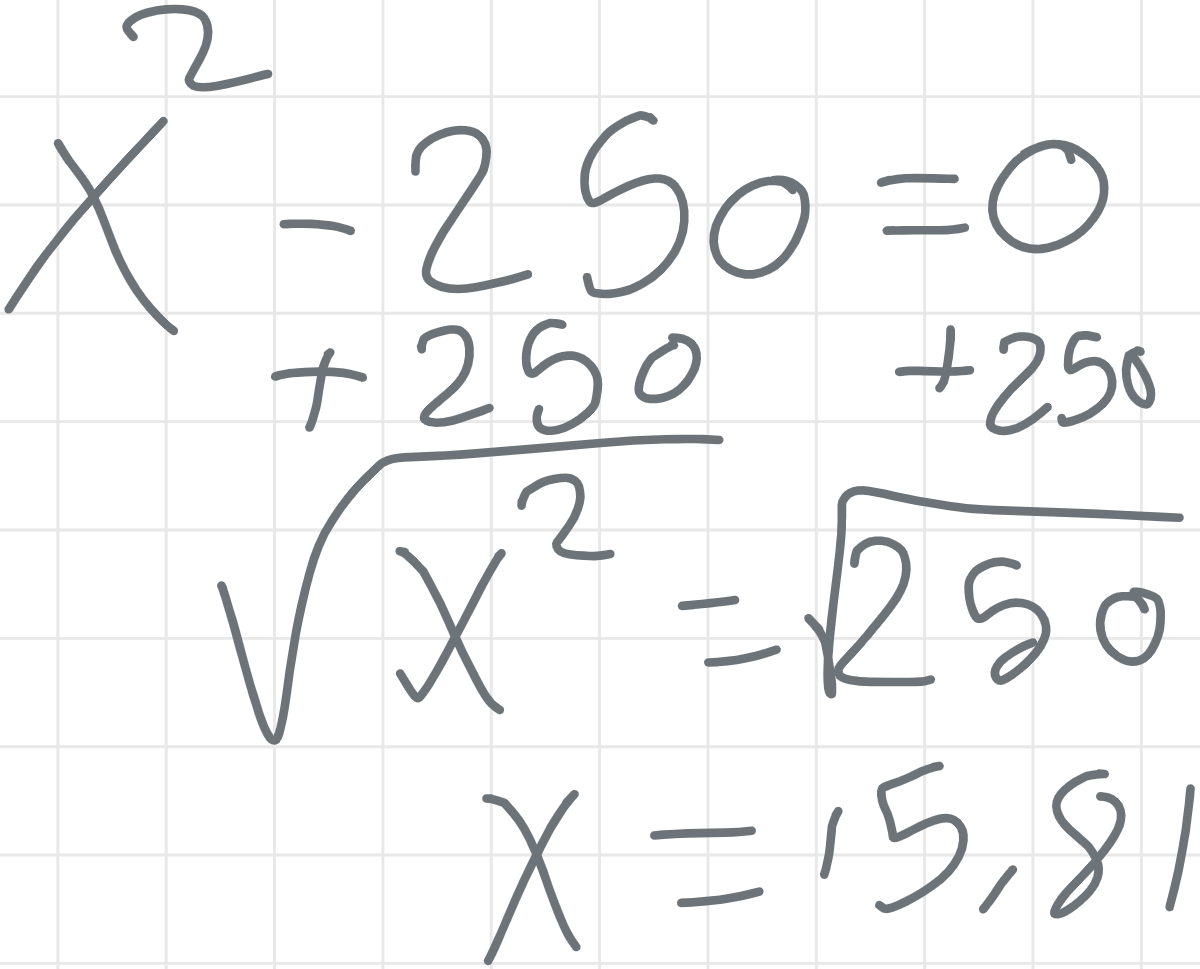 x² - 250 = 0
+ 250 + 250
√x² = √250
x = 15,81